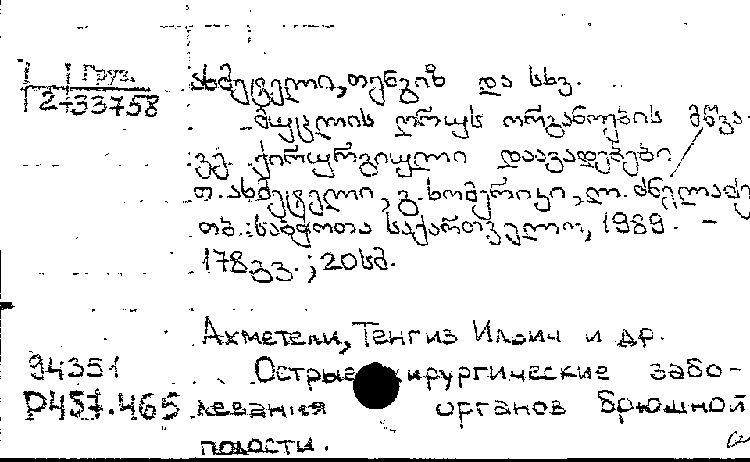 Груз.
2-33758
ახმეტელი, თენგიზ და სხვ.
მუცლის ღრუს ორგანოების მწვა-
ვე ქირურგიული დაავადებები /
თ. ახმეტელი, გ. ხომერიკი, ლ. ძნელაძე
თბ.: საბჭოთა საქართველო, 1989. –
178 გვ.; 20 სმ.
Ахметели, Тенгиз Ильич и др.
94351 Острые хирургические забо-
Р457.465 левания органов брюшной
полости.